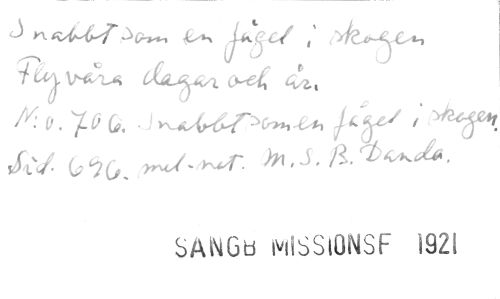 Snabbt som en fågel i skogen
Fly våra dagar och år.
N:o. 706. Snabbt som en fågel i skogen.
Sid. 696. mel-not. M. S. B. Danda.
SANGB MISSIONSF 1921